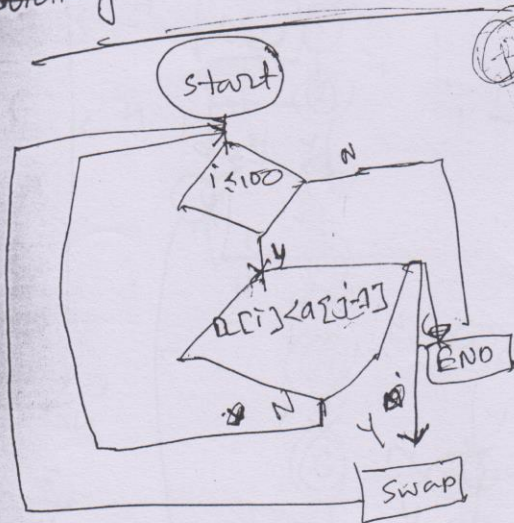 start
i≤100
N
Y
a[i]<a[j-1]
END
N
Y
Swap